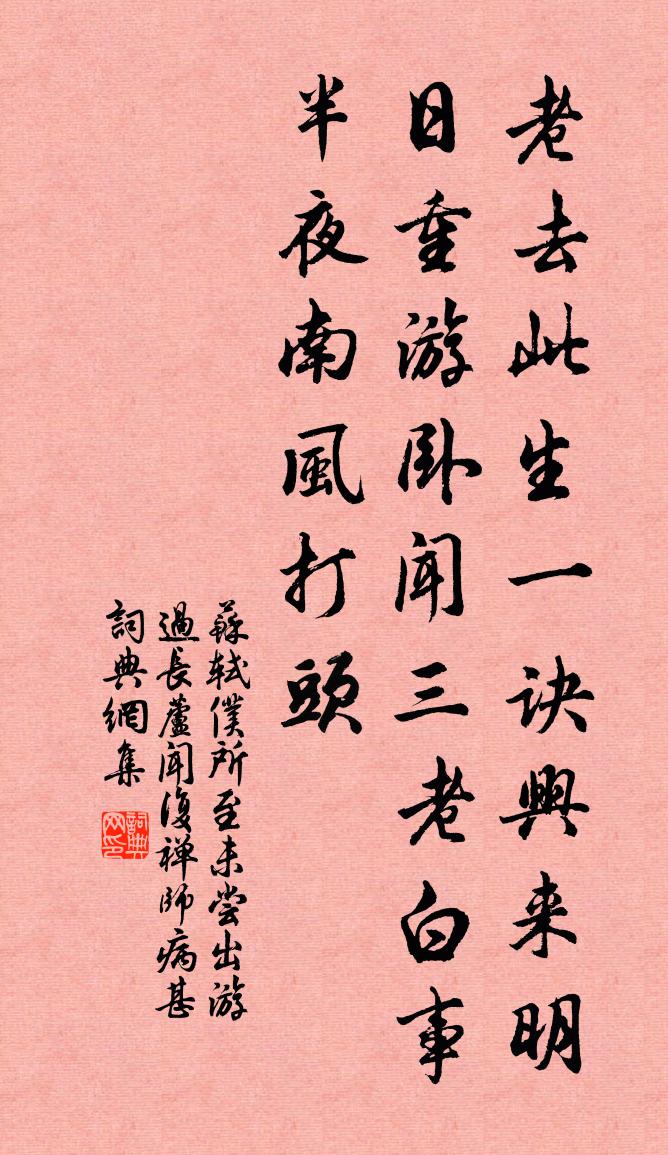 老去此生一訣興来明
日重游卧闻三老白事
半夜南風打頭
蘇軾僕所至未尝出游
過長蘆闻復禅師病甚
詞典網集
詞典
网印